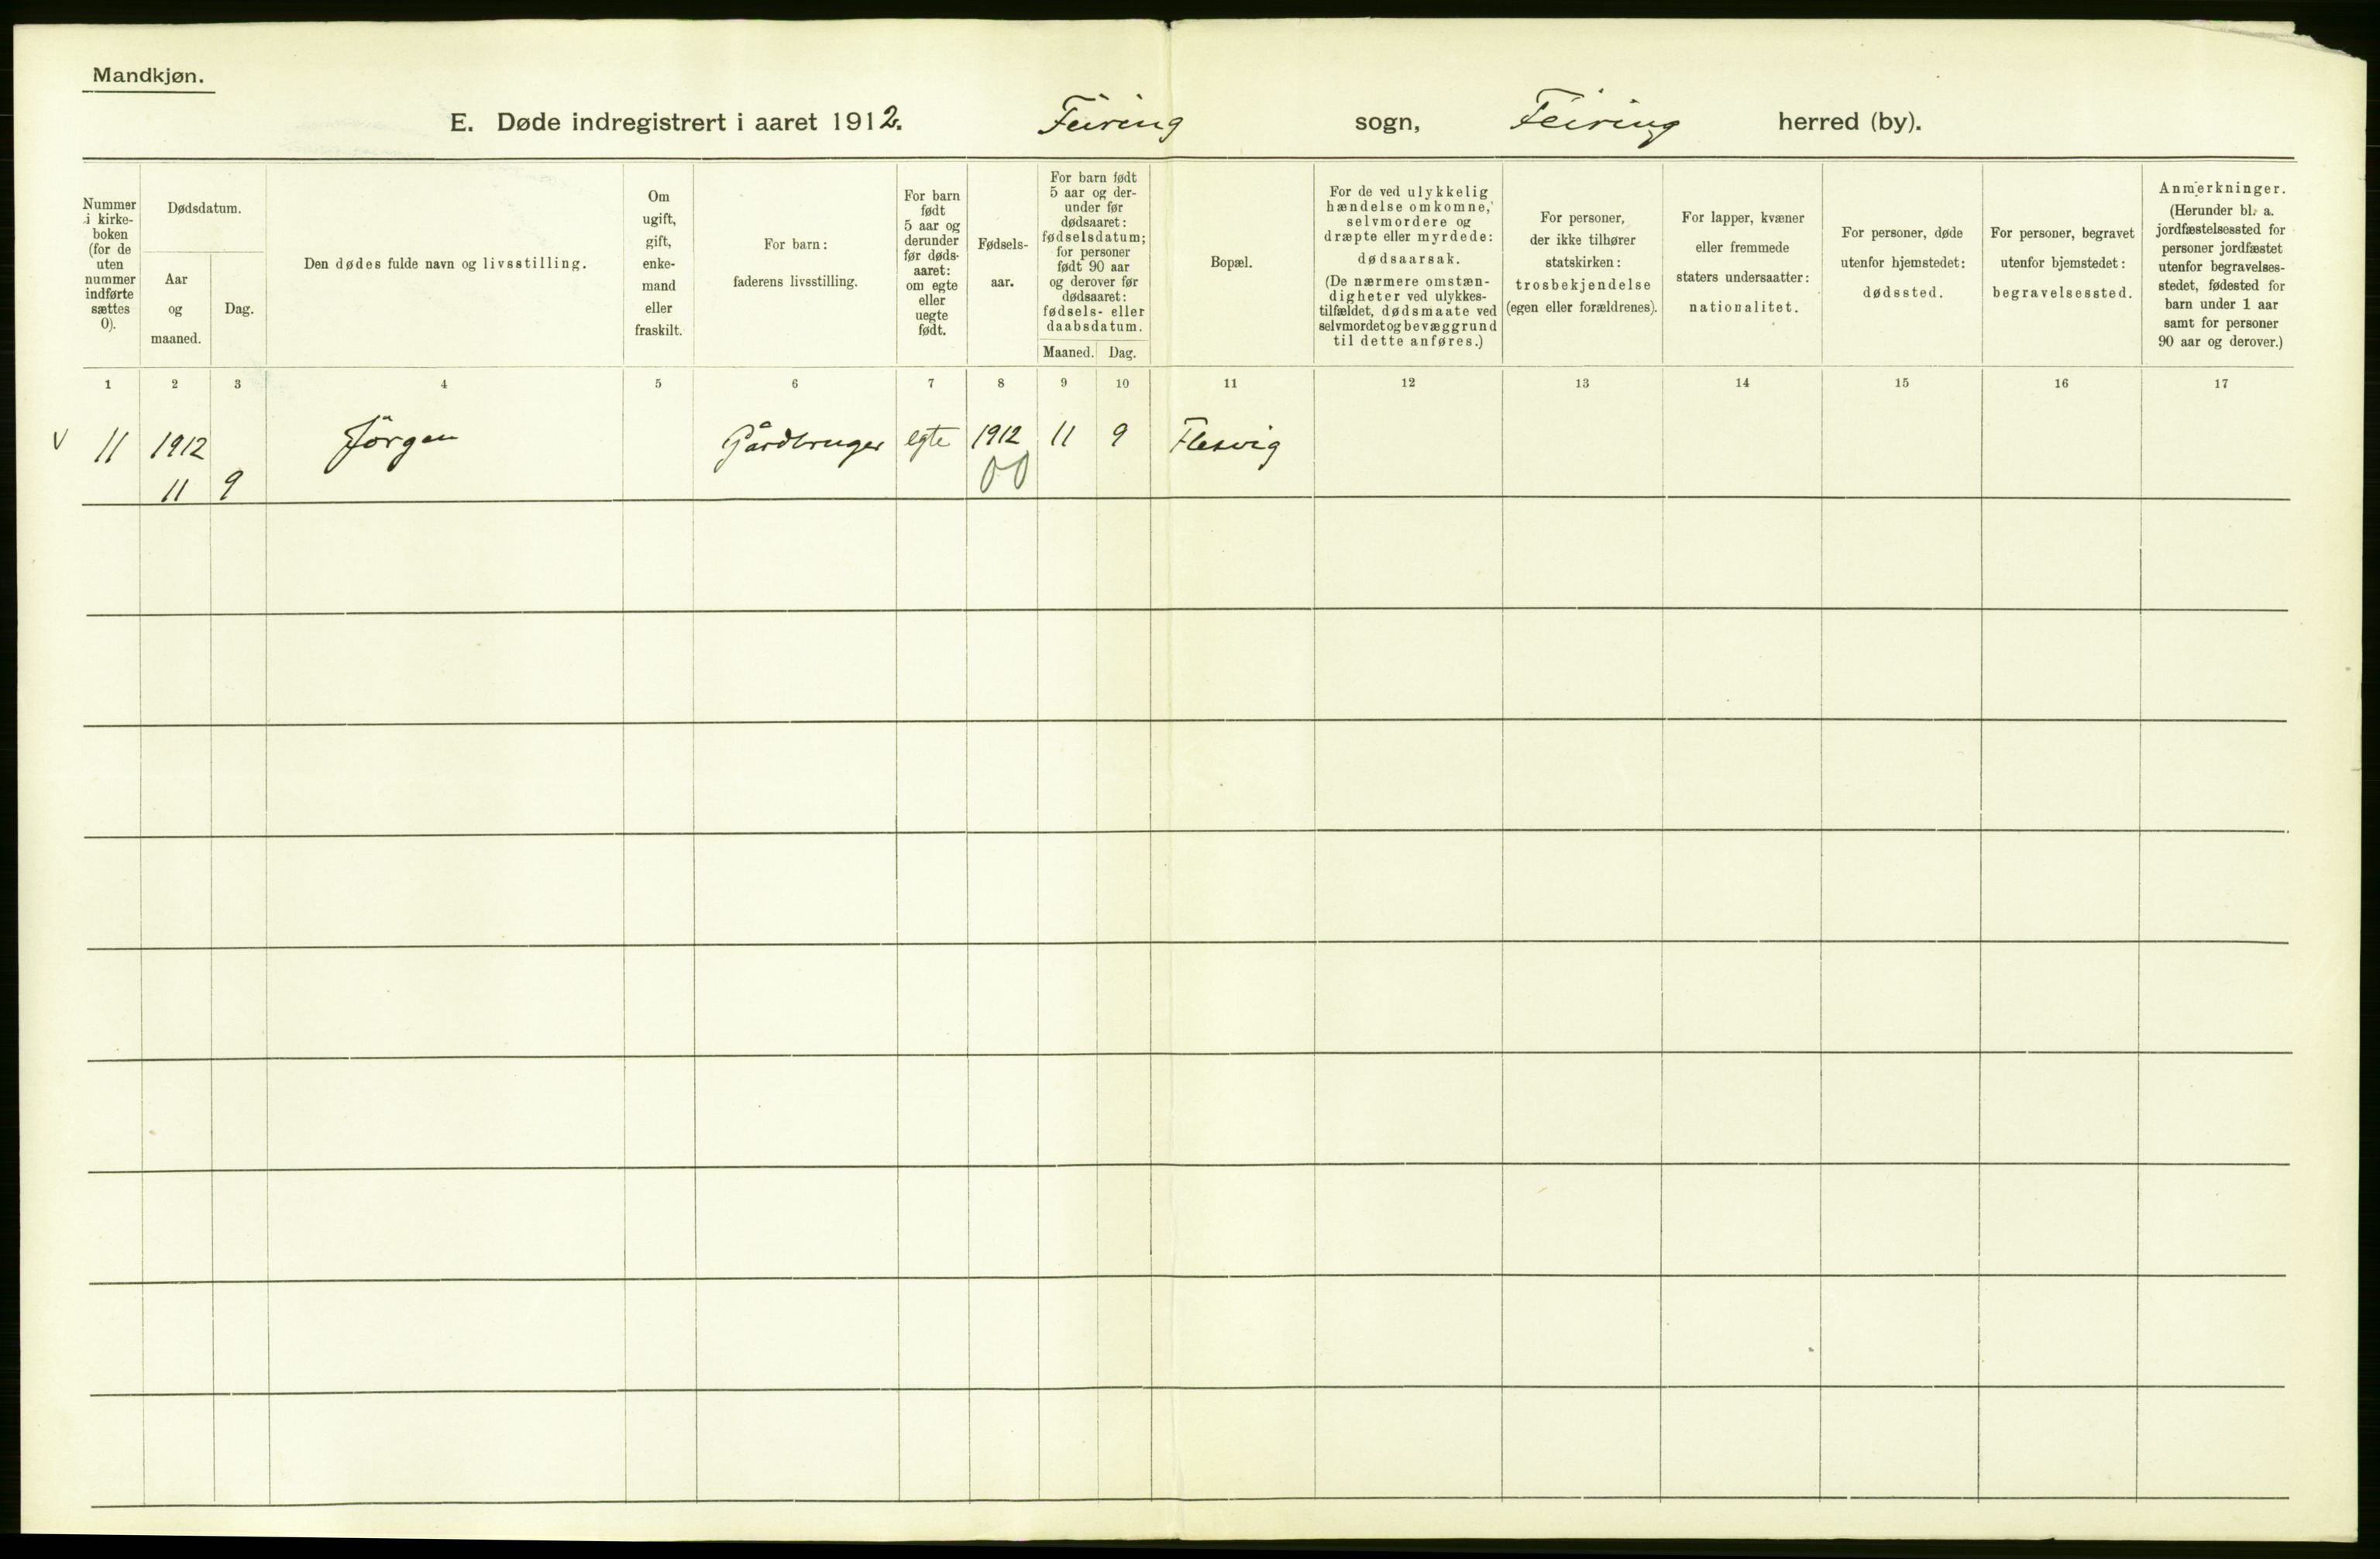 Mandkjøn.
E. Døde indregistrert i aaret 1912. Feiring sogn, Feiring herred (by).
Nummer
i kirke-
boken
(for de
uten
nummer
indførte
sættes
0).
Dødsdatum.
Aar
og
maaned.
Dag.
Den dødes fulde navn og livsstilling.
Om
ugift,
gift,
enke-
mand
eller
fraskilt.
For barn:
faderens livsstilling.
For barn
født
5 aar og
derunder
før døds-
aaret:
om egte
eller
uegte
født.
Fødsels-
aar.
For barn født
5 aar og der-
under før
dødsaaret:
fødselsdatum;
for personer
født 90 aar
og derover før
dødsaaret:
fødsels- eller
daabsdatum.
Maaned. Dag.
Bopæl.
For de ved ulykkelig
hændelse omkomne,
selvmordere og
dræpte eller myrdede:
dødsaarsak.
(De nærmere omstæn-
digheter ved ulykkes-
tilfældet, dødsmaate ved
selvmordet og bevæggrund
til dette anføres.)
For personer,
der ikke tilhører
statskirken:
trosbekjendelse
(egen eller forældrenes).
For lapper, kvæner
eller fremmede
staters undersaatter:
nationalitet.
For personer, døde
utenfor hjemstedet:
dødssted.
For personer, begravet
utenfor bjemstedet:
begravelsessted.
Anmerkninger.
(Herunder bl. a.
jordfæstelsessted for
personer jordfæstet
utenfor begravelses-
stedet, fødested for
barn under 1 aar
samt for personer
90 aar og derover.)
1 2 3 4 5 6 7 8 9 10 11 12 13 14 15 16 17
v 11 1912 Jörgen Gårdbruger egte 1912 11 9 Flesvig
11 9 00